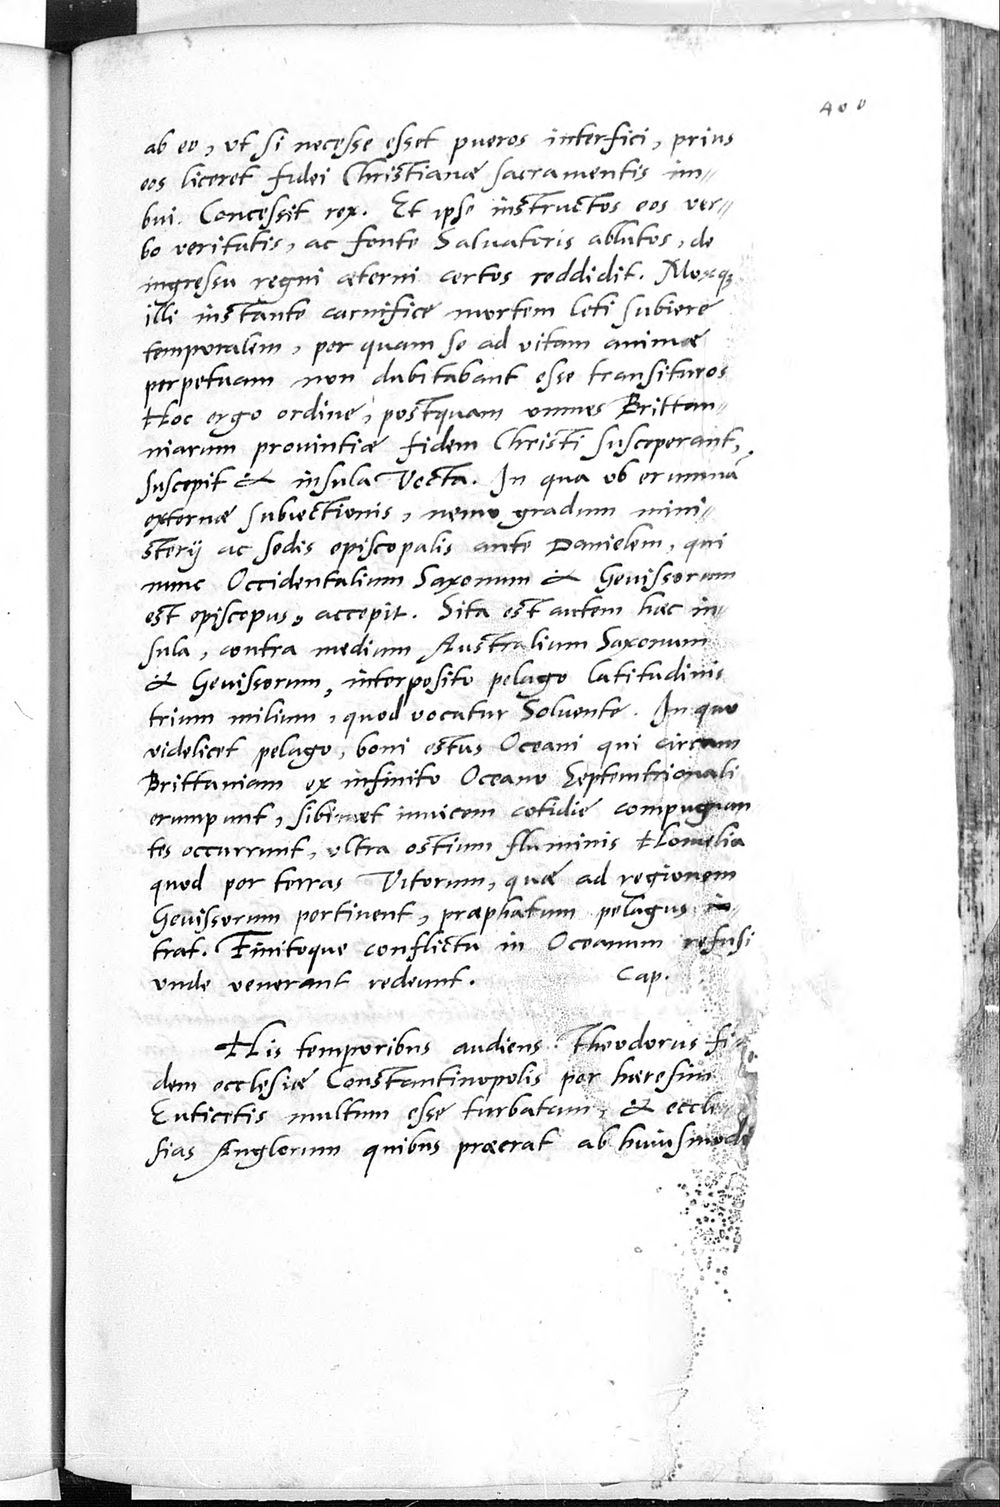 400
ab eo, ut si necesse esset pueros interfici, prius
eos liceret fidei Christianæ sacramentis im-
bui. Concessit rex. Et ipse instructos eos ver-
bo veritatis, ac fonte Saluatoris ablutos, de
ingressu regni æterni certos reddidit. Moxq;
illi instante carnifice mortem leti subiere
temporalem, per quam se ad vitam animæ
perpetuam non dubitabant esse transituros
Hoc ergo ordine, postquam omnes Brittan-
niarum provintiæ fidem Christi susceperant,
suscepit & insula Vecta. In qua ob erumnã
externæ subiectionis, nemo gradum mini-
sterij ac sedis episcopalis ante Danielem, qui
nunc Occidentalium Saxonum & Gevissorum
est episcopus, accepit. Sita est autem hæc in-
sula, contra medium Australium Saxonum
& Gevissorum, interposito pelago latitudinis
trium milium, quod vocatur Solvente. In quo
videlicet pelago, boni estus Oceani qui circum
Brittaniam ex infinito Oceano Septemtrionali
erumpunt, sibimet invicem cotidie compugnan
tes occurrunt, ultra ostium fluminis Homelia
quod per terras Vitorum, quæ ad regionem
Gevissorum pertinent, præphatum pelagus in-
trat. Finitoque conflictu in Oceanum refusi
unde venerant redeunt. Cap.
His temporibus audiens Theodorus fi-
dem ecclesiæ Constantinopolis per hæresim
Euticetis multum esse turbatam, & eccle-
sias Anglorum quibus præerat ab huiusmodi